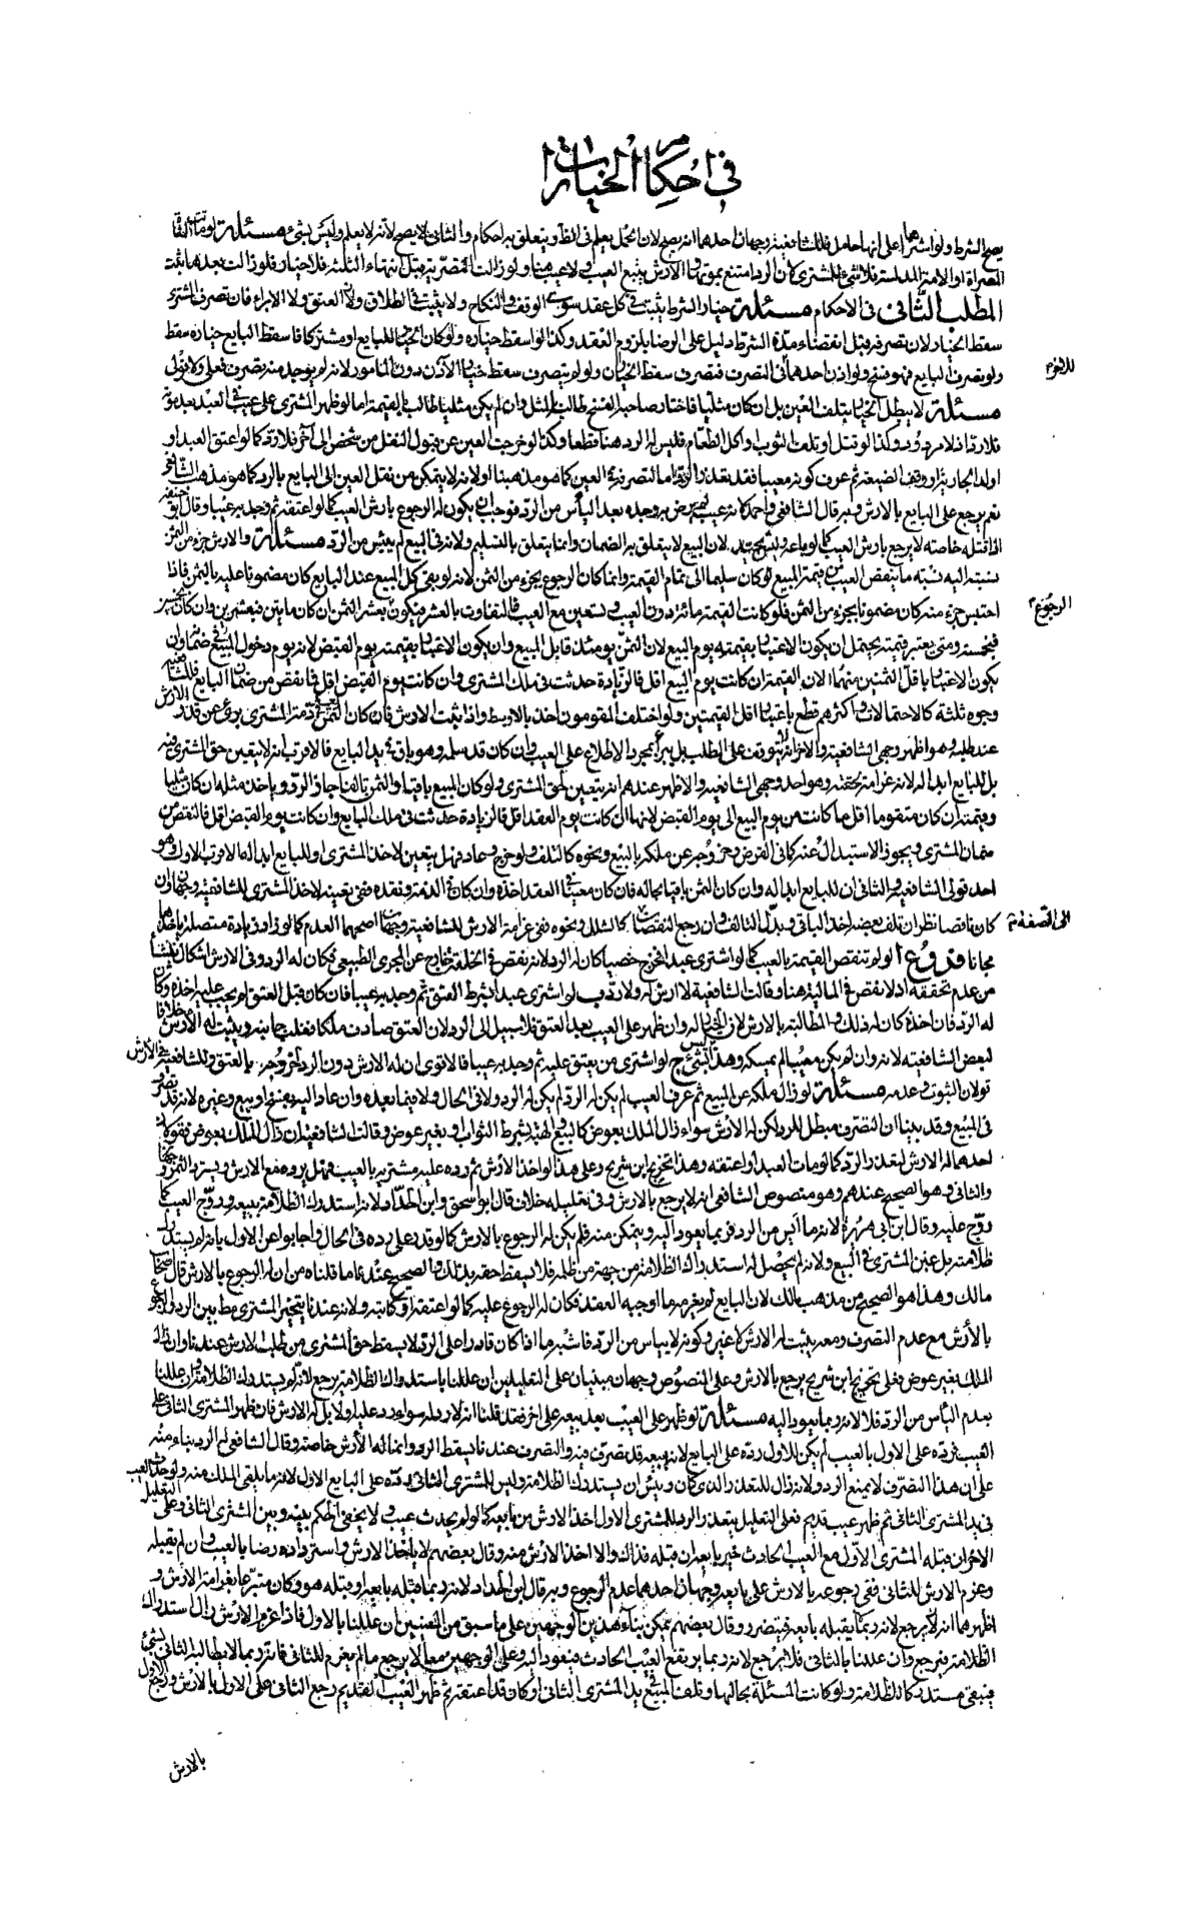 في احكام الخيارات
يصح الشرط ولو اشتراها على انها حامل فللشافعية وجهان احدهما انه يصح لان الحمل يعلم في الظاهر ويتعلق به احكام والثاني لا يصح لانه لا يعلم وليس بشئ مسئلة لو ماتت الشاة
المصراة او الامة المدلسة فلا شئ للمشتري لان الرد امتنع بموتها والارش يتبع العيب ولا عيب هنا ولو زالت التصرية قبل انتهاء الثلثة فلا خيار فلو زالت بعدها ثبت
المطلب الثاني في الاحكام مسئلة خيار الشرط يثبت في كل عقد سوى الوقف والنكاح ولا يثبت في الطلاق ولا العتق ولا الابراء فان تصرف المشتري
سقط الخيار لان تصرفه قبل انقضاء مدة الشرط دليل على الرضا بلزوم العقد وكذا لو اسقط خياره ولو كان الخيار للبايع او مشتركا فاسقط البايع خياره سقط
ولو تصرف البايع فهو فسخ ولو اذن احدهما في التصرف فتصرف سقط الخياران ولو لم يتصرف سقط خيار الآذن دون المأمور لانه لم يوجد منه تصرف فعلي ولا قولي
مسئلة لا يبطل الخيار بتلف العين بل ان كان مثليا فاختار صاحبه الفسخ طالب بالمثل وان لم يكن مثليا طالب بالقيمة اما لو ظهر المشتري على عيب في العبد بعد موته
فلا رد اذ لا مردود وكذا لو قتل او تلف الثوب واكل الطعام فليس له الرد هنا قطعا وكذا لو خرجت العين عن قبول النقل من شخص الى آخر فلا رد كما لو اعتق العبد او
اولد الجارية او وقف الضيعة ثم عرف كونه معيبا فقد تعذر الرد اما لتصرفه في العين كما هو مذهبنا او لانه لا يتمكن من نقل العين الى البايع بالرد كما هو مذهب الشافعي
نعم يرجع على البايع بالارش وبه قال الشافعي واحمد لانه عيب لم يرض به وجده بعد اليأس من الرد فوجب ان يكون له الرجوع بارش العيب كما لو اعتقه ثم وجد به عيبا وقال ابو حنيفة
اذا قتله خاصة لا يرجع بارش العيب كما لو باعه وليس بجيد لان البيع لا يتعلق به الضمان وانما يتعلق بالتسليم ولانه في البيع لم ييئس من الرد مسئلة والارش جزء من الثمن
نسبته اليه نسبة ما ينقص العيب من قيمة المبيع لو كان سليما الى تمام القيمة وانما كان الرجوع بجزء من الثمن لانه لو بقي كل المبيع عند البايع كان مضمونا عليه بالثمن فاذا
احتبس جزء منه كان مضمونا بجزء من الثمن فلو كانت القيمة مائة دون العيب وتسعين مع العيب فالتفاوت بالعشر فيكون بعشر الثمن ان كان مايتين فبعشرين وان كان خمسين
فبخمسة ومتى يعتبر قيمته يحتمل ان يكون الاعتبار بقيمته يوم البيع لان الثمن يومئذ قابل المبيع وان يكون الاعتبار بقيمته يوم القبض لانه يوم دخول المبيع في ضمانه وان
يكون الاعتبار باقل الثمنين منهما لان القيمة ان كانت يوم البيع اقل فالزيادة حدثت في ملك المشتري وان كانت يوم القبض اقل فما نقص من ضمان البايع وللشافعية
وجوه ثلثة كالاحتمالات واكثرهم قطع باعتبار اقل القيمتين ولو اختلف المقومون اخذ بالاوسط واذا ثبت الارش فان كان الثمن بعد في ذمة المشتري برئ عن قدر الارش
عند طلبه وهو اظهر وجهي الشافعية والاخر انه لا يتوقف على الطلب بل يبرأ بمجرد الاطلاع على العيب وان كان قد سلمه وهو باق في يد البايع فالاقرب انه لا يتعين حق المشتري فيه
بل للبايع ابداله لانه غرامة لحقته وهو احد وجهي الشافعية والاظهر عندهم انه يتعين لحق المشتري ولو كان المبيع باقيا والثمن تالفا جاز الرد ويأخذ مثله ان كان مثليا
وقيمته ان كان متقوما اقل ما كانت من يوم البيع الى يوم القبض لانها ان كانت يوم العقد اقل فالزيادة حدثت في ملك البايع وان كانت يوم القبض اقل فالنقص من
ضمان المشتري ويجوز الاستبدال عنه كما في القرض وخروجه عن ملكه بالبيع ونحوه كالتلف ولو خرج وعاد فهل يتعين لاخذ المشتري او للبايع ابداله الاقرب الاول وهو
احد قولي الشافعية والثاني ان للبايع ابداله وان كان الثمن باقيا بحاله فان كان معينا في العقد اخذه وان كان في الذمة ونقده ففي تعيينه لاخذ المشتري للشافعية وجهان وان
كان ناقصا نظر ان تلف بعضه اخذ الباقي وبدل التالف وان رجع النقصان كالشلل ونحوه ففي غرامة الارش للشافعية وجهان اصحهما العدم كما لو زاد زيادة متصلة ياخذها
مجانا فروع ا لو لم تنقص القيمة بالعيب كما لو اشترى عبدا فخرج خصيا كان له الرد لانه نقص في الخلقة خارج عن المجرى الطبيعي فكان له الرد وفي الارش اشكال ينشأ
من عدم تحققه اذ لا نقص في المالية هنا وقالت الشافعية لا ارش له ولا رد ب لو اشترى عبدا بشرط العتق ثم وجد به عيبا فان كان قبل العتق لم يجب عليه اخذه وكان
له الرد فان اخذه كان له ذلك والمطالبة بالارش لان الخيار له وان ظهر على العيب بعد العتق فلا سبيل الى الرد لان العتق صادف ملكا فغلب جانبه ويثبت له الارش خلافا
لبعض الشافعية لانه وان لم يكن معيبا لم يمسكه وهذا ليس بشئ ج لو اشترى من يعتق عليه ثم وجد به عيبا فالاقوى ان له الارش دون الرد لخروجه بالعتق وللشافعية في الارش
قولان الثبوت وعدمه مسئلة لو زال ملكه عن المبيع ثم عرف العيب لم يكن له الرد لم يكن له الرد ولا في الحال ولا فيما بعده وان عاد اليه بفسخ او بيع وغيره لانه قد تصرف
في المبيع وقد بينا ان التصرف مبطل للرد لكن له الارش سواء زال الملك بعوض كالبيع والهبة بشرط الثواب او بغير عوض وقالت الشافعية ان زال الملك بعوض فقولان
احدهما له الارش لتعذر الرد كما لو مات العبد او اعتقه وهذا تخريج ابن شريح وعلى هذا لو اخذ الارش ثم رده عليه مشتريه بالعيب فهل يرده مع الارش ويسترد الثمن وجهان
والثاني وهو الصحيح عندهم وهو منصوص الشافعي انه لا يرجع بالارش وفي تعليله خلاف قال ابو اسحق وابن الحداد لانه استدرك الظلامة ببيعه وروج العيب كما
روج عليه وقال ابن ابي هريرة لانه ما ايس من الرد فربما يعود اليه ويتمكن منه فلم يكن له الرجوع بالارش كما لو قدر على رده في الحال واجابوا عن الاول بانه لم يستدرك
ظلامته بل غبن المشتري في البيع ولانه لم يحصل له استدراك الظلامة من جهة من ظلمه فلا يسقط حقه بذلك والصحيح عندنا ما قلناه من ان له الرجوع بالارش قال اصحاب
مالك وهذا هو الصحيح من مذهب مالك لان البايع لم يغرمه ما اوجبه العقد فكان له الرجوع عليه كما لو اعتقه او كاتبه ولانه عندنا يتخير المشتري مطلقا بين الرد والرجوع
بالارش مع عدم التصرف ومعه يثبت له الارش لا غير وكونه لا يياس من الرد فاشبه ما اذا كان قادرا على الرد لا يسقط حق المشتري من طلب الارش عندنا وان زال
الملك بغير عوض فعلى تخريج ابن شريح يرجع بالارش وعلى المنصوص وجهان مبنيان على التعليلين ان عللنا باستدراك الظلامة يرجع لانه لم يستدرك الظلامة وان عللنا
بعدم اليأس من الرد فلا لانه ربما يعود اليه مسئلة لو ظهر على العيب بعد بيعه على اخر فقد قلنا انه لا رد له سواء رد عليه او لا بل له الارش فان ظهر المشتري الثاني على
العيب فرده على الاول بالعيب لم يكن للاول رده على البايع لانه ببيعه قد تصرف فيه والتصرف عندنا يسقط الرد وانما له الارش خاصة وقال الشافعي له الرد بناء منه
على ان هذا التصرف لا يمنع الرد ولانه زال التعذر الذي كان وتبين انه لم يستدرك الظلامة وليس للمشتري الثاني رده على البايع الاول لانه ما تلقى الملك منه ولو حدث العيب
في يد المشتري الثاني ثم ظهر عيب قديم فعلى التعليل بتعذر الرد للمشتري الاول اخذ الارش من بايعه كما لو لم يحدث عيب ولا يخفى الحكم بينه وبين المشتري الثاني وعلى التعليل
الاخر ان قبله المشتري الاول مع العيب الحادث خير بايعه ان قبله فذاك والا اخذ الارش منه وقال بعضهم لا ياخذ الارش واسترداده رضا بالعيب وان لم يقبله
وغرم الارش للثاني ففي رجوعه بالارش على بايعه وجهان احدهما عدم الرجوع وبه قال ابن الحداد لانه ربما قبله بايعه لو قبله هو وكان متبرعا بغرامة الارش و
اظهرهما انه لا يرجع لانه ربما لا يقبله بايعه فيتضرر وقال بعضهم يمكن بناء هذين الوجهين على ما سبق من المعنيين ان عللنا بالاول فاذا غرم الارش زال استدراك
الظلامة فيرجع وان عللنا بالثاني فلا يرجع لانه ربما يرتفع العيب الحادث فيعود اليه وعلى الوجهين معا لا يرجع ما لم يغرم للثاني فانه ربما لا يطالبه الثاني بشئ
فيبقى مستدركا للظلامة ولو كانت المسئلة بحالها وتلف المبيع في يد المشتري الثاني او كان قد اعتقه ثم ظهر العيب القديم رجع الثاني على الاول بالارش ورجع الاول
بالارش
الرجوع
الى النصف